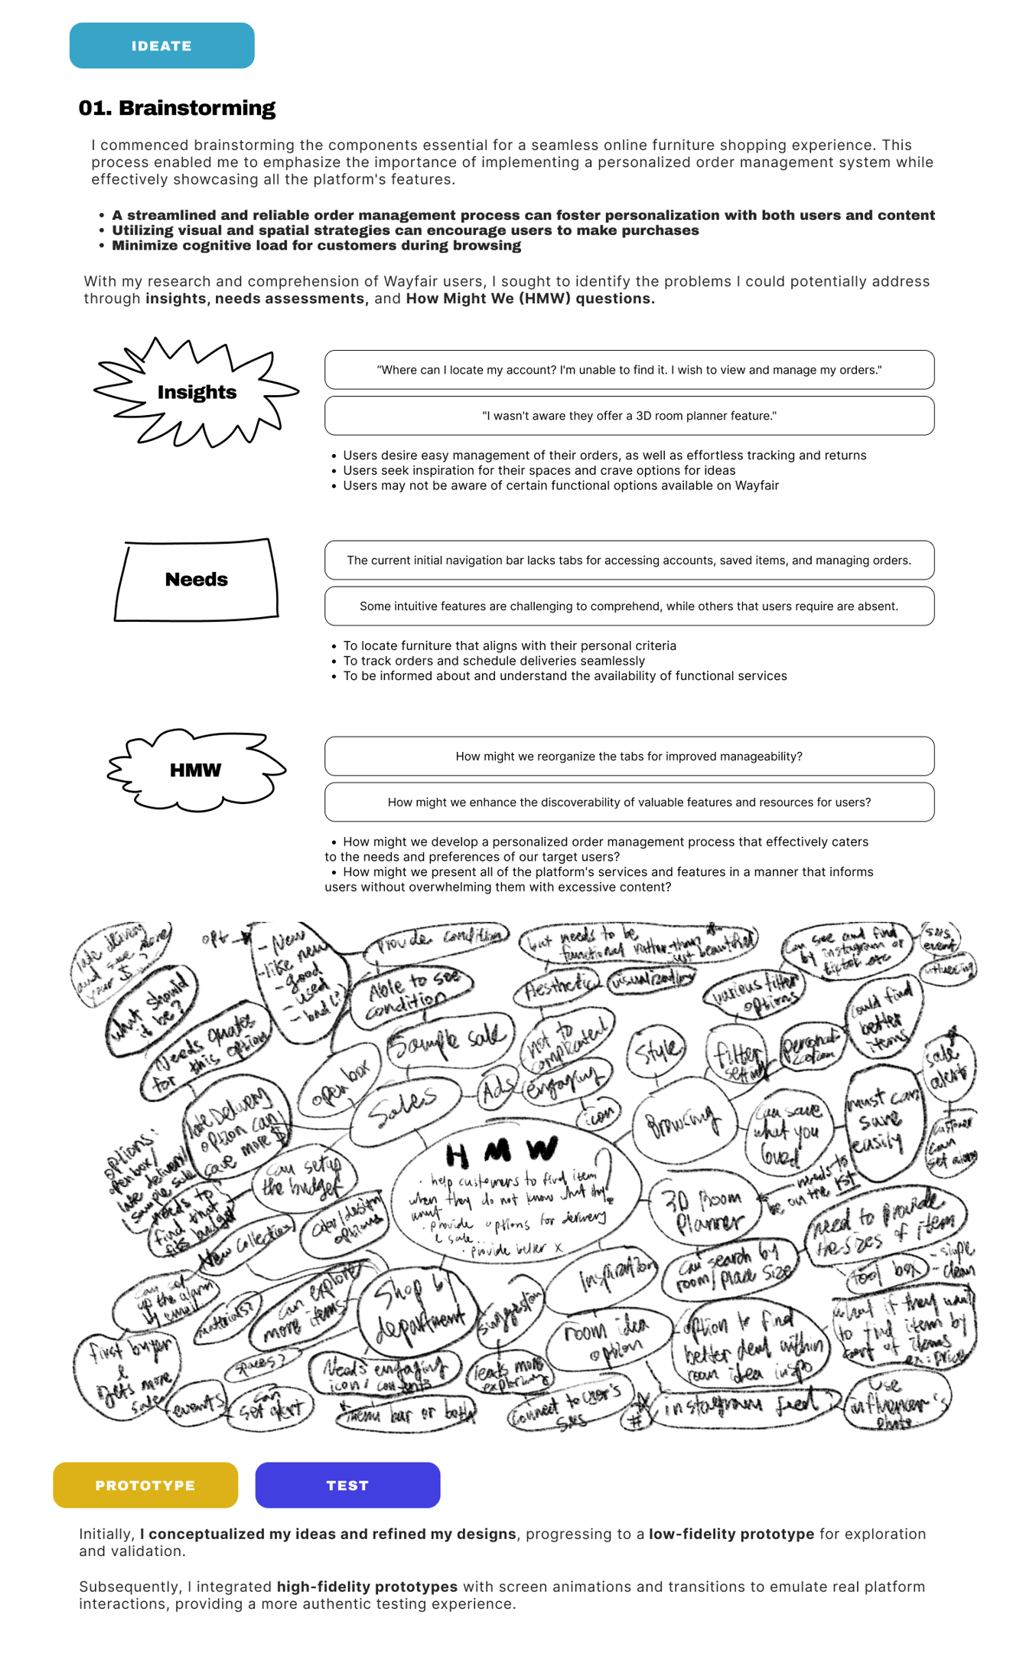 IDEATE
01. Brainstorming
I commenced brainstorming the components essential for a seamless online furniture shopping experience. This
process enabled me to emphasize the importance of implementing a personalized order management system while
effectively showcasing all the platform's features.
• A streamlined and reliable order management process can foster personalization with both users and content
• Utilizing visual and spatial strategies can encourage users to make purchases
• Minimize cognitive load for customers during browsing
With my research and comprehension of Wayfair users, I sought to identify the problems I could potentially address
through insights, needs assessments, and How Might We (HMW) questions.
Insights
"Where can I locate my account? I'm unable to find it. I wish to view and manage my orders."
"I wasn't aware they offer a 3D room planner feature."
• Users desire easy management of their orders, as well as effortless tracking and returns
• Users seek inspiration for their spaces and crave options for ideas
• Users may not be aware of certain functional options available on Wayfair
Needs
The current initial navigation bar lacks tabs for accessing accounts, saved items, and managing orders.
Some intuitive features are challenging to comprehend, while others that users require are absent.
• To locate furniture that aligns with their personal criteria
• To track orders and schedule deliveries seamlessly
• To be informed about and understand the availability of functional services
HMW
How might we reorganize the tabs for improved manageability?
How might we enhance the discoverability of valuable features and resources for users?
• How might we develop a personalized order management process that effectively caters
to the needs and preferences of our target users?
• How might we present all of the platform's services and features in a manner that informs
users without overwhelming them with excessive content?
late delivery
and save more
your $ ?
what should
it be?
Needs quotes
for this option
opt
- New
- like new
- good
- used
- bad
Provide condition
Able to see
condition
Sample sale
open box
Sales
Ads
engaging
icon
not to
complicated
Aesthetic
visualization
but needs to be
functional rather than just beautiful
Style
filter
setting
various filter
options
personalization
could find
better
items
can see and find
by instagram or
tiktok etc
sns
event
influencing
sale
alert
customer
can
set alarm
Browsing
can save
what you
loved
must can
save
easily
late Delivery
option can
save more $
options:
open box/
late delivery/
sample sale
can setup
the budget
needs to
find that
fits budget
New collections
color/design
options
HMW
• help customers to find item
when they do not know what they
want
• provide options for delivery
& sale...
• provide better x
3D Room
Planner
needs to
be on the 1st
need to provide
the sizes of item
tool box
- simple
- clean
can search by
room/place size
inspiration
room idea
option
option to find
better deal within
room idea inspo
what if they want
to find item by
sort of items
ex: price
Shop by
department
can explore
more items
materials?
spaces?
can set
up the alarm
by email
first buyer
&
gets more
sale
events
can
set alert
Needs engaging
icon / contents
menu bar or both
suggestion
leads more
exploring
Connect to user's
sns
#
instagram feed
use
influencer's
photo
PROTOTYPE
TEST
Initially, I conceptualized my ideas and refined my designs, progressing to a low-fidelity prototype for exploration
and validation.
Subsequently, I integrated high-fidelity prototypes with screen animations and transitions to emulate real platform
interactions, providing a more authentic testing experience.